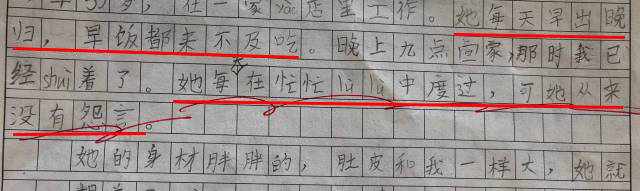 在一家店里工作。她每天早出晚
归，早饭都来不及吃。晚上九点回家，那时我已
经shui着了。她每天在忙忙lulu中度过，可她从来
没有怨言。
她的身材胖胖的，肚皮和我一样大，她就